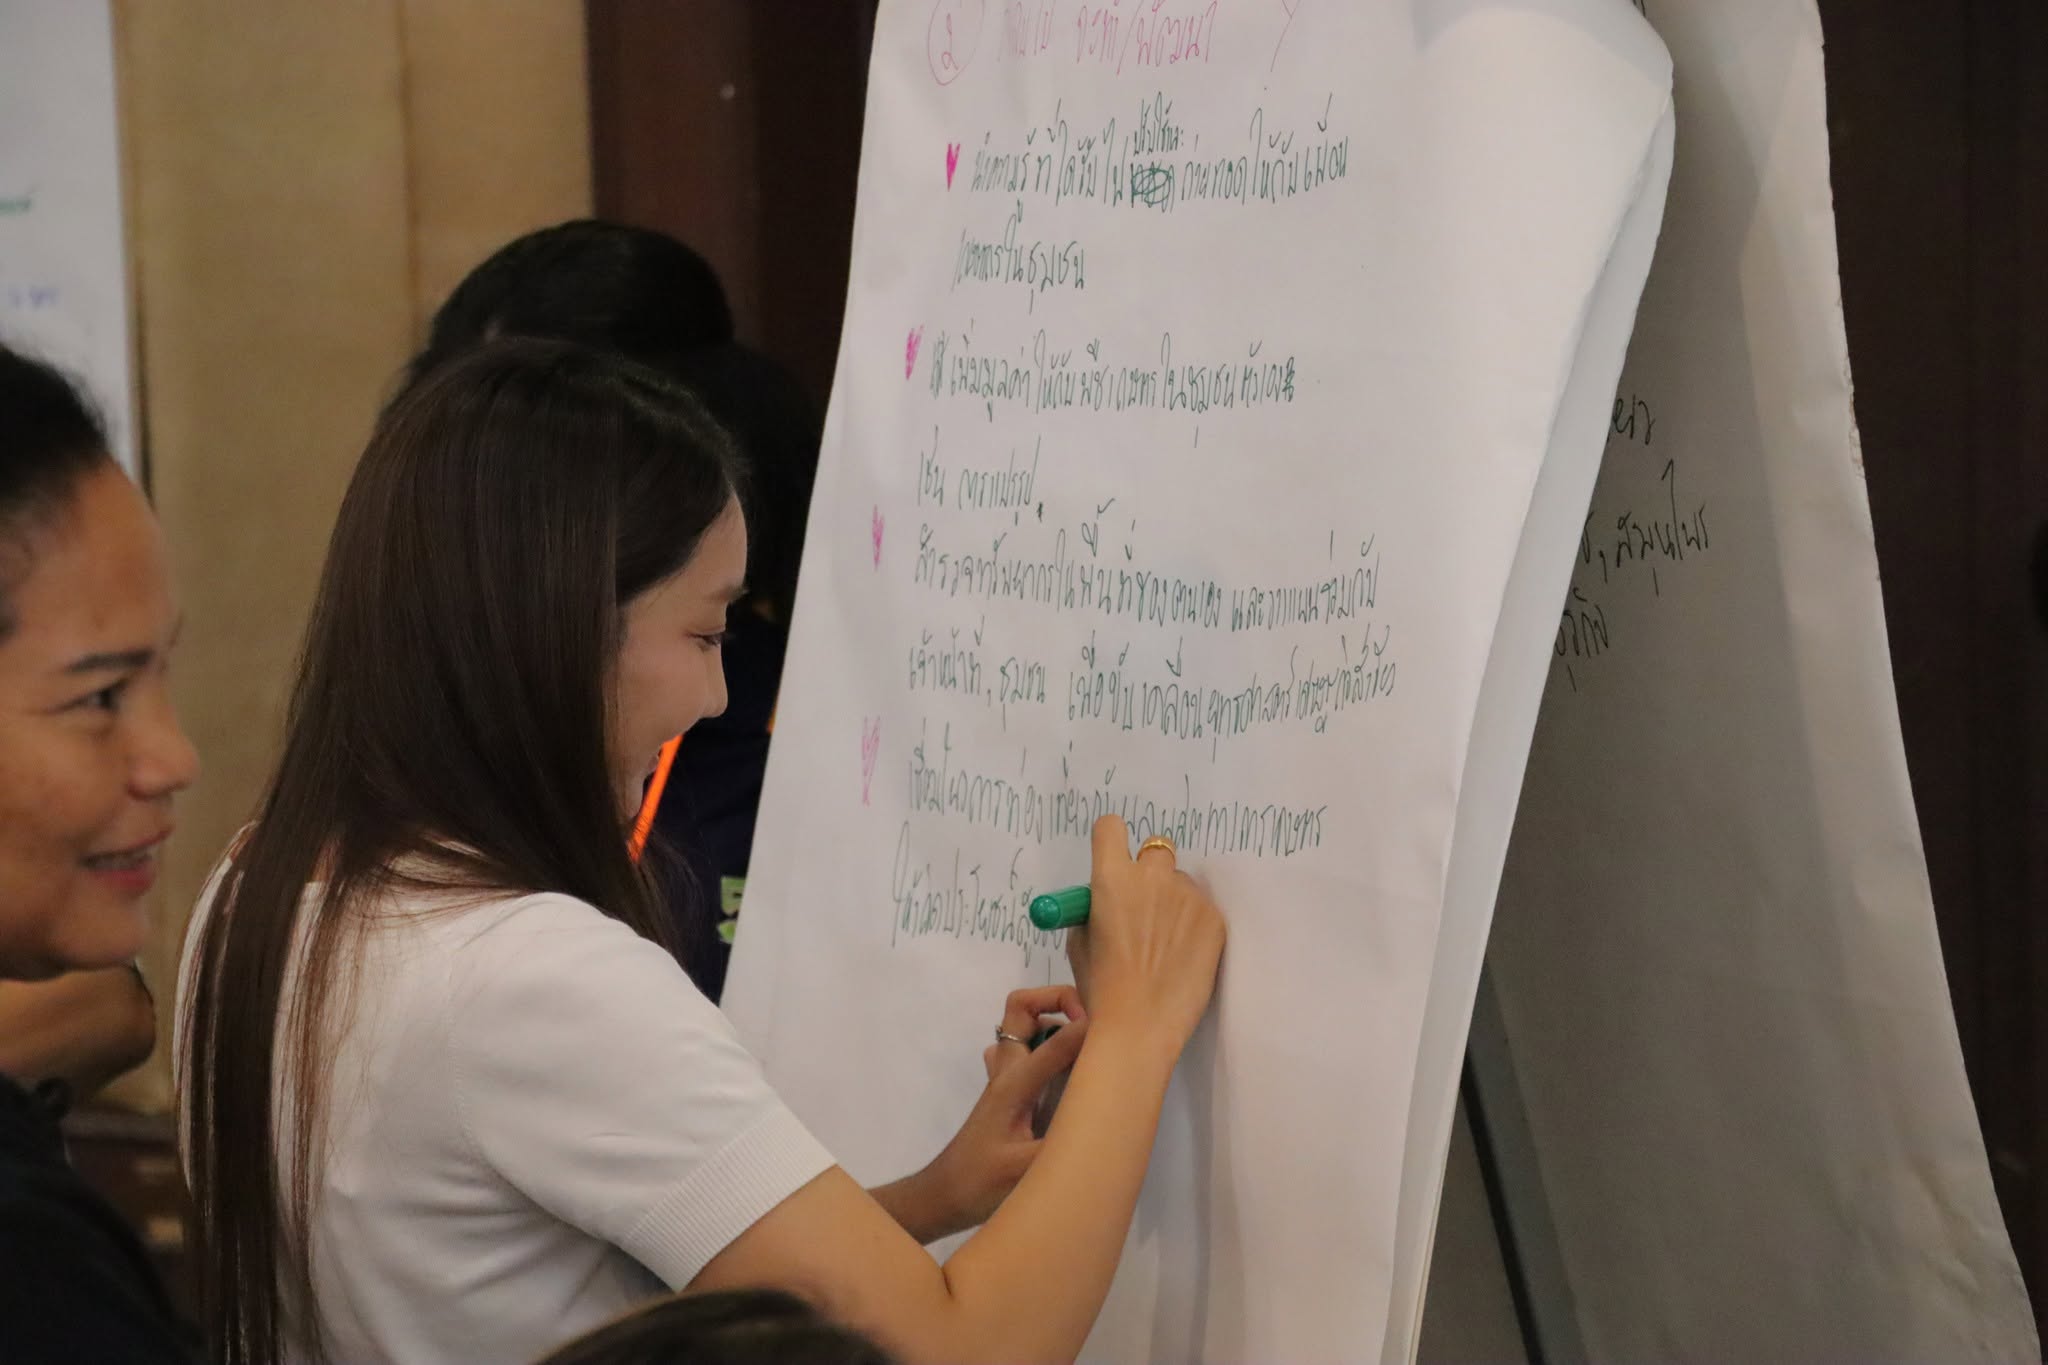 ② กลับไป จะทำ/พัฒนา
นำความรู้ที่ได้รับไปปรับใช้และถ่ายทอดให้กับเพื่อน
เกษตรกรในชุมชน
เพิ่มมูลค่าให้กับพืชเกษตรในชุมชนตัวเอง
เช่น การแปรรูป
สำรวจทรัพยากรในพื้นที่ของตนเอง และวางแผนร่วมกับ
เจ้าหน้าที่, ชุมชน เพื่อขับเคลื่อนยุทธศาสตร์เศรษฐกิจสีเขียว
เชื่อมโยงการท่องเที่ยวกับผลผลิตทางการเกษตร
ให้เกิดประโยชน์สูงสุด
สมุนไพร
ธุรกิจ